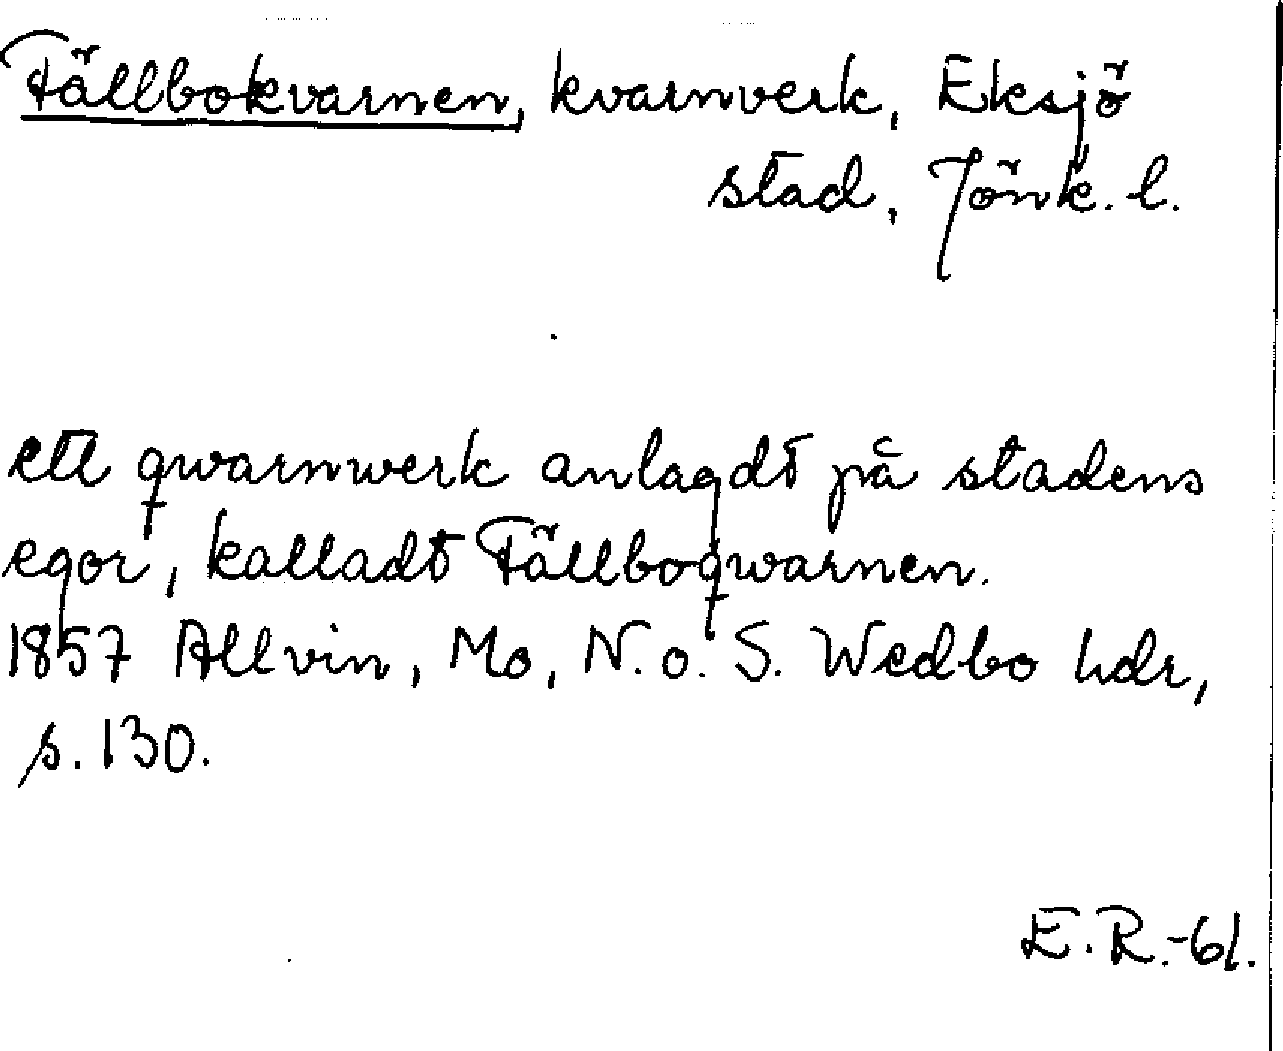 Fällbokvarnen, kvarnverk, Eksjö
stad, Jönk. l.
ett qwarnwerk anlagdt på stadens
egor, kalladt Fällboqwarnen.
1857 Allvin, Mo, N. o. S. Wedbo hdr,
s. 130.
E. R. -61.